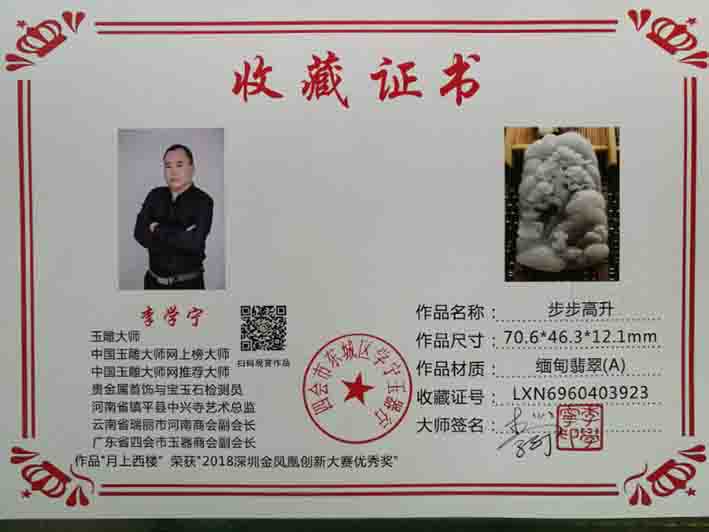 收藏证书
李学宁
玉雕大师
中国玉雕大师网上榜大师
中国玉雕大师网推荐大师
贵金属首饰与宝玉石检测员
河南省镇平县中兴寺艺术总监
云南省瑞丽市河南商会副会长
广东省四会市玉器商会副会长
作品"月上西楼"荣获"2018深圳金凤凰创新大赛优秀奖"
扫码观赏作品
四会市东城区学宁玉器行
作品名称: 步步高升
作品尺寸: 70.6*46.3*12.1mm
作品材质: 缅甸翡翠(A)
收藏证号: LXN6960403923
大师签名:
李學寧印